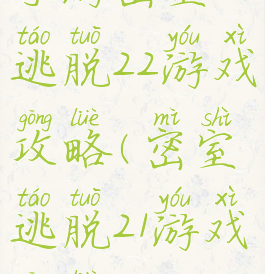 táo tuō yóu xì
逃脱22游戏
gōng lüè mì shì
攻略(密室
táo tuō yóu xì
逃脱21游戏